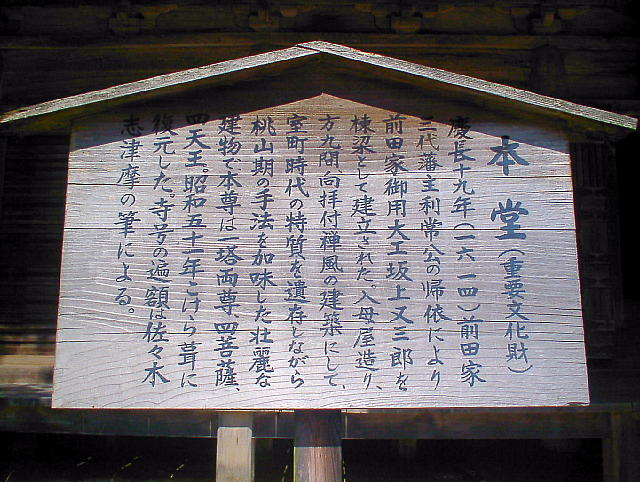 本堂(重要文化財)
慶長十九年(一六一四)前田家
三代藩主利常公の帰依により
前田家御用大工坂上又三郎を
棟梁として建立された。入母屋造り、
方九間、向拝付禅風の建築にして、
室町時代の特質を遺存しながら
桃山期の手法を加味した壮麗な
建物で本尊は一塔両尊、四菩薩、
四天王。昭和五十一年こけら葺に
復元した。寺号の遍額は佐々木
志津摩の筆による。